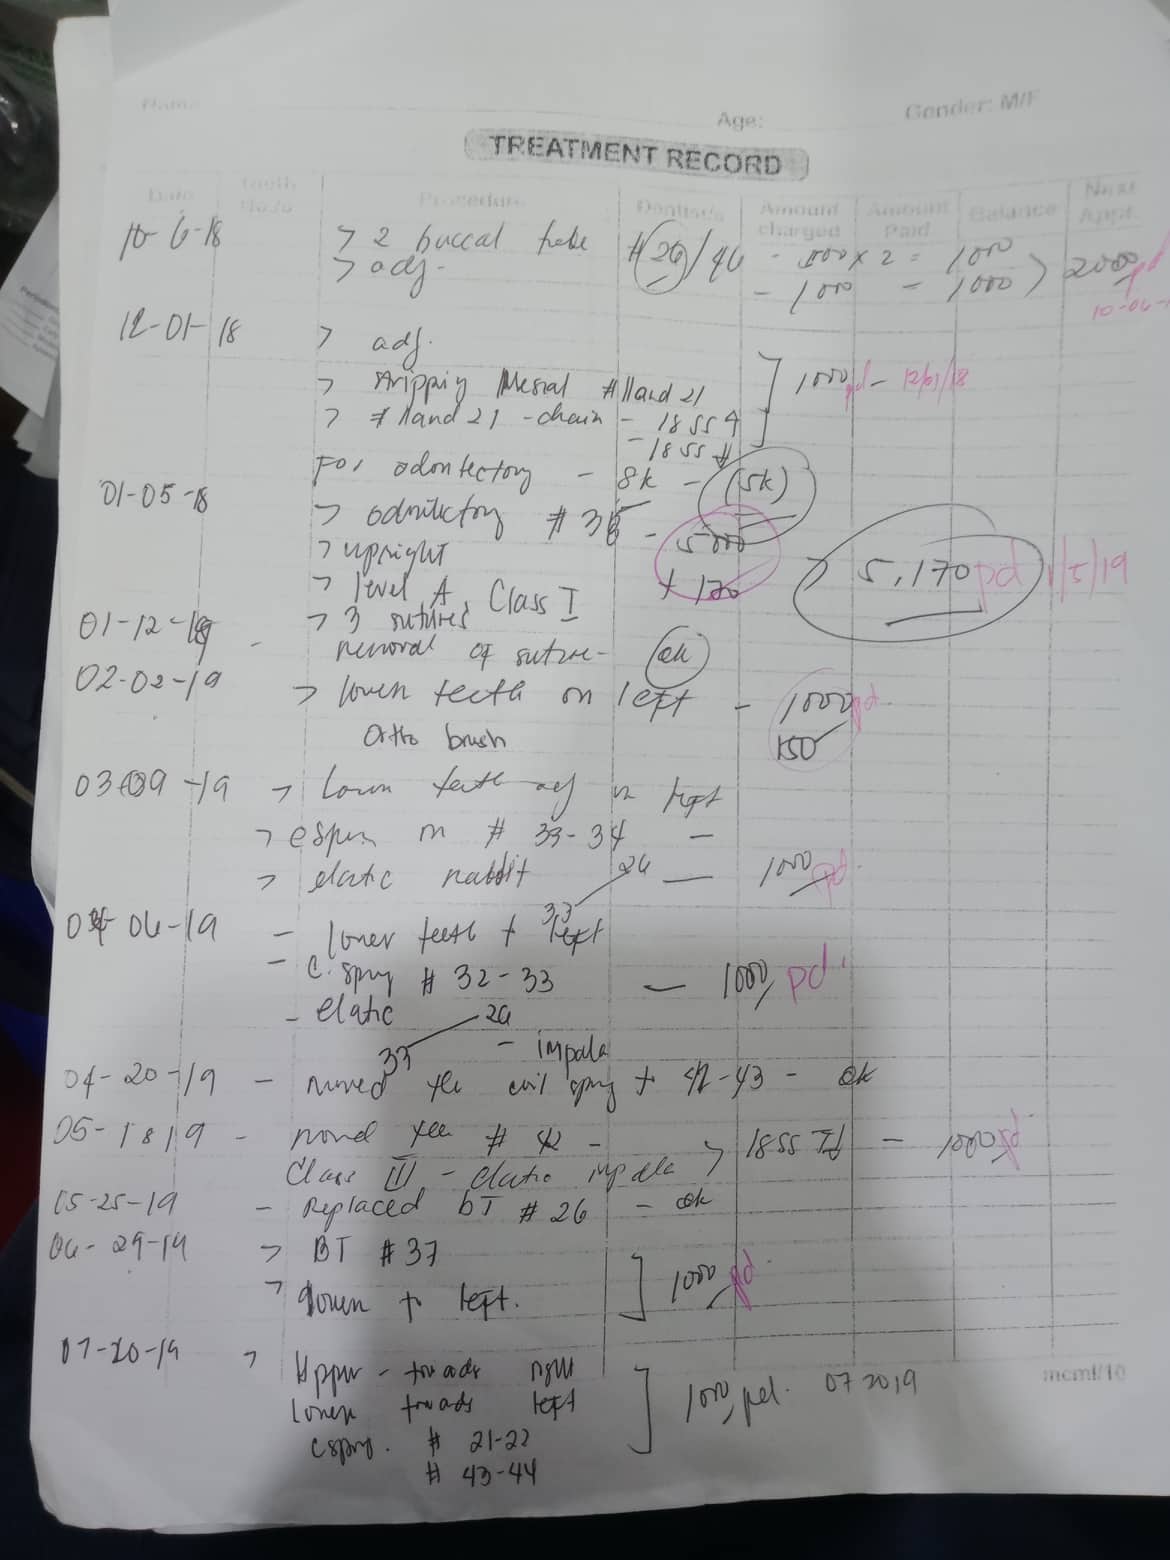 Name
Age:
Gender: M/F
TREATMENT RECORD
Date Tooth No./s Procedure Dentist/s Amount charged Amount Paid Balance Next Appt.
10-6-18 > 2 buccal tube # 26/46 - 500 x 2 = 1000
> adj. - 1000 = 1000 > 2000 pd
12-01-18 > adj.
> stripping Mesial # 11 and 21 1000 pd - 12/01/18
> # 11 and 21 - chain - 18 SS
- 18 SS
For odontectomy - 8k - (5k)
01-05-18 > odontectomy # 38 - 5000
> upright + 170 > 5,170 pd 1/5/19
> level A, Class I
> 3 sutures
01-12-19 - removal of suture - ok
02-02-19 > lower teeth on left - 1000 pd.
Ortho brush 150
03-09-19 > lower teeth adj in left
> on # 33-34 -
> elastic rabbit 26 - 1000 pd.
33
04-06-19 - lower teeth + left
- C. spring # 32-33 - 1000, pd.
- elatic 26
33 - impala
04-20-19 - moved the coil spring + 42-43 - ok
05-18 19 - # 42 - > 18 SS - 1000 pd
Class II - elatic impala
05-25-19 - Replaced BT # 26 - ok
06-29-19 > BT # 37
> lower + left. 1000 pd.
07-20-19 > Upper - towards right
lower towards left 1000, pd. 07 2019
cspring. # 21-22
# 43-44
mcml/10